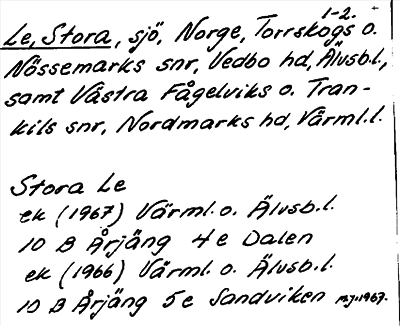 1-2.
Le, Stora, sjö, Norge, Torrskogs o.
Nössemarks snr, Vedbo hd, Älvsb.l.,
samt Västra Fågelviks o. Tran-
kils snr, Nordmarks hd, Värml.l.
Stora Le
ek (1967) Värml. o. Älvsb.l.
10 B Årjäng 4e Dalen
ek (1966) Värml. o. Älvsb.l.
10 B Årjäng 5e Sandviken mj.1967.